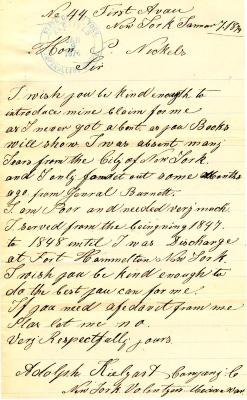 No 44, First Avau
New York Januar 7, 187
Hon. P. Nickels
Sir
I wish you be kind enough to
introduce mine claim for me
as I never got a bont. as you Books
will show. I was absent many
Jears from the City of New York.
and I only foundet out some Months
ago. from Genral Barnett.
I am Poor and needed very much.
I served from the beinning 1847.
to 1848 until I was Discharge
at Fort Hammelton New York.
I wish you be kind enough to
do the best you can for me!
If you need afedavet from me
Plas let me no.
Very Respectfully yours
Adolph
Company C
New York Volontyir Mexican War